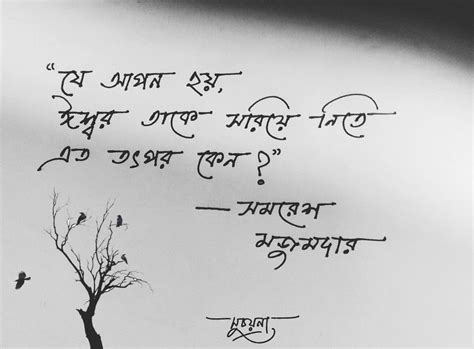 “যে আপন হয়,
ঈশ্বর তাকে সরিয়ে নিতে
এত তৎপর কেন?”
— সমরেশ
মজুমদার
সুচয়না